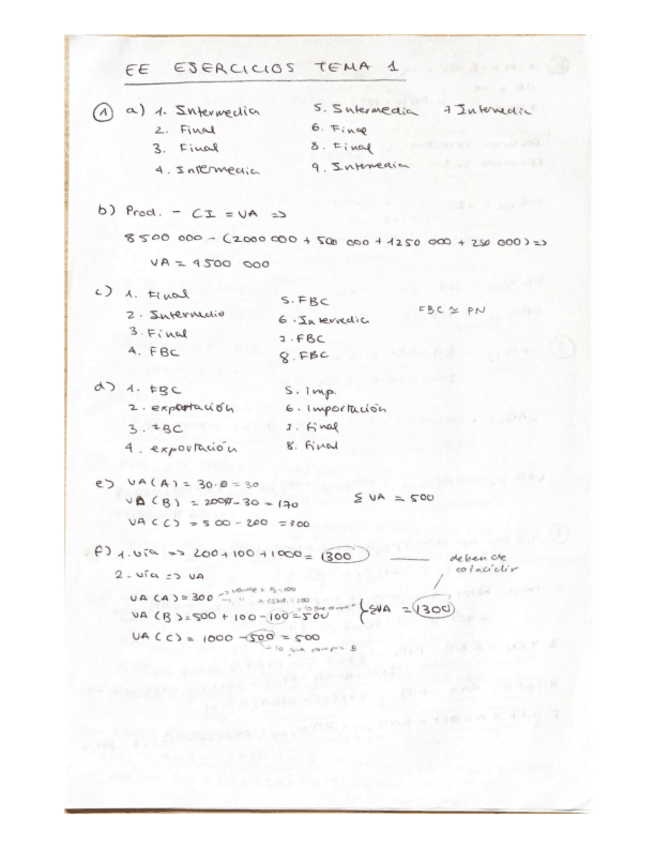 EE EJERCICIOS TEMA 1
① a) 1. Intermedia 5. Intermedia 7 Intermedia
2. Final 6. Final
3. Final 8. Final
4. Intermedia 9. Intermedia
b) Prod. - CI = VA =>
8500 000 - (2000 000 + 500 000 + 1250 000 + 250 000) =>
VA = 4500 000
c) 1. Final 5. FBC
2. Intermedio 6. Intermedia FBC ≃ PN
3. Final 7. FBC
4. FBC 8. FBC
d) 1. FBC 5. Imp.
2. exportación 6. Importación
3. FBC 7. Final
4. exportación 8. Final
e) VA(A) = 30-0 = 30
VA (B) = 200-30 = 170 Σ VA = 500
VA (C) = 500 - 200 = 300
f) 1. vía => 200+100+1000 = 1300 deben de
2. vía => VA coincidir
VA (A) = 300
VA (B) = 500 + 100 - 100 = 500 ΣVA = 1300
VA (C) = 1000 - 500 = 500
lo que compra B